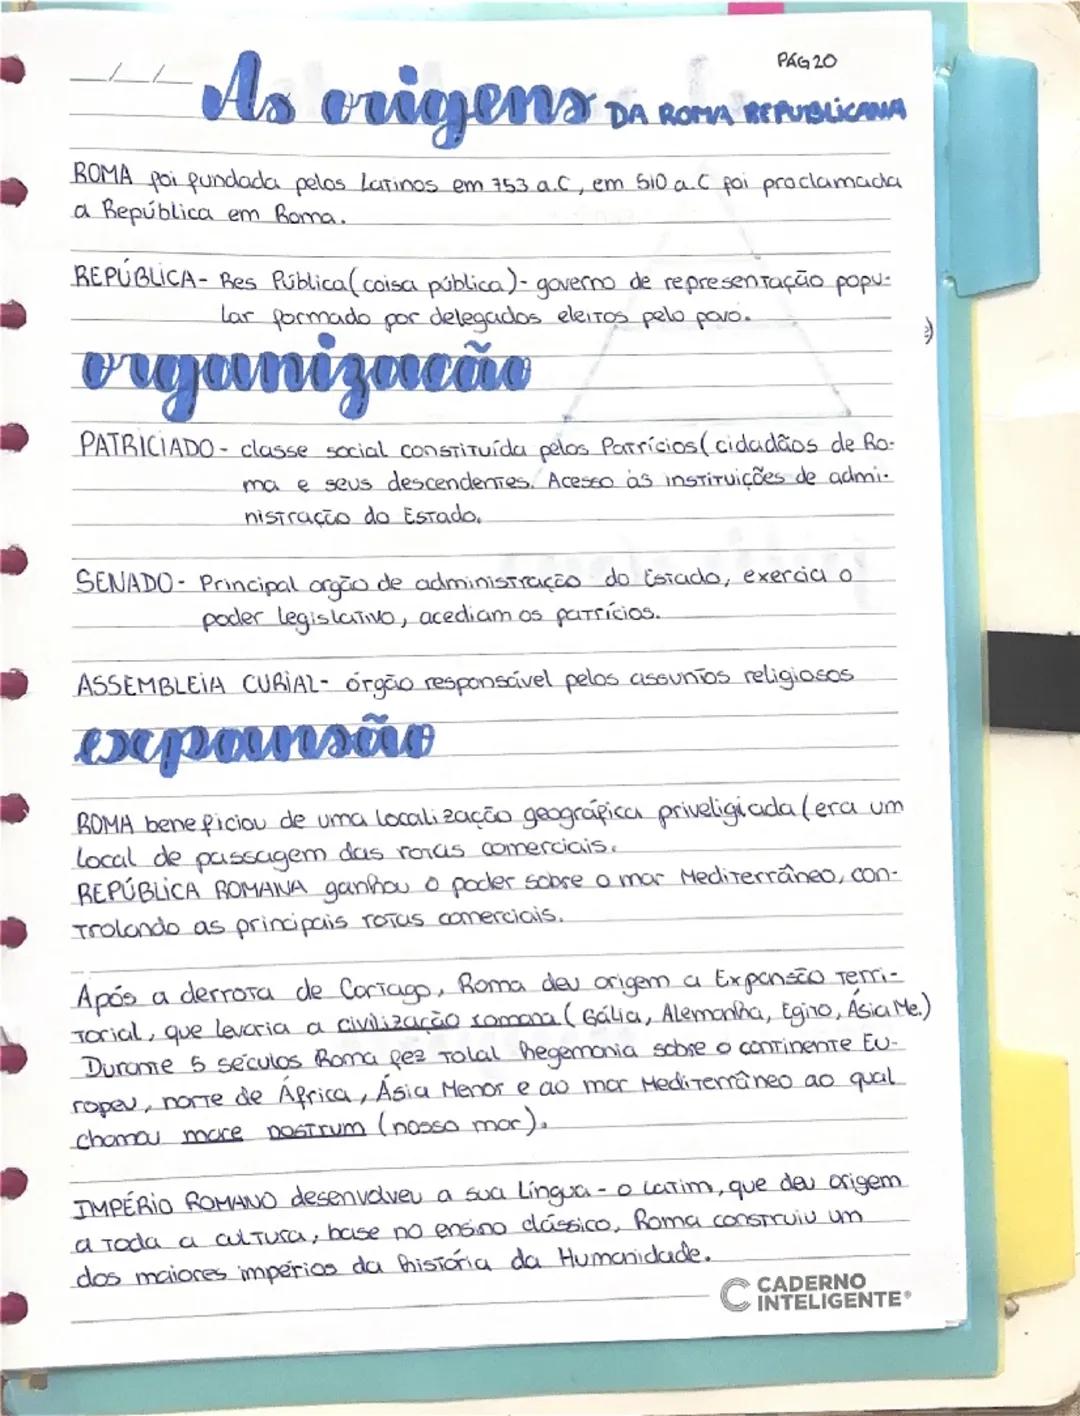 PÁG 20
__/__/__ As origens DA ROMA REPUBLICANA
ROMA foi fundada pelos Latinos em 753 a.C, em 510 a.C foi proclamada
a República em Roma.
REPÚBLICA- Res Pública (coisa pública)- governo de representação popu-
lar formado por delegados eleitos pelo povo.
organizacão
PATRICIADO- classe social constituída pelos Patrícios (cidadãos de Ro-
ma e seus descendentes. Acesso às instituições de admi-
nistração do Estado.
SENADO- Principal orgão de administração do Estado, exercia o
poder legislativo, acediam os patrícios.
ASSEMBLEIA CURIAL- órgão responsável pelos assuntos religiosos
expansão
ROMA beneficiou de uma localização geográfica priveligiada (era um
local de passagem das rotas comerciais.
REPÚBLICA ROMANA ganhou o poder sobre o mar Mediterrâneo, con-
trolando as principais rotas comerciais.
Após a derrota de Cartago, Roma deu origem a Expansão Terri-
torial, que levaria a civilização romana (Gália, Alemanha, Egito, Ásia Me.)
Durante 5 séculos Roma fez total hegemonia sobre o continente Eu-
ropeu, norte de África, Ásia Menor e ao mar Mediterrâneo ao qual
chamou mare nostrum (nosso mar).
IMPÉRIO ROMANO desenvolveu a sua língua - o Latim, que deu origem
a toda a cultura, base no ensino clássico, Roma construiu um
dos maiores impérios da história da Humanidade.
CADERNO
INTELIGENTE®